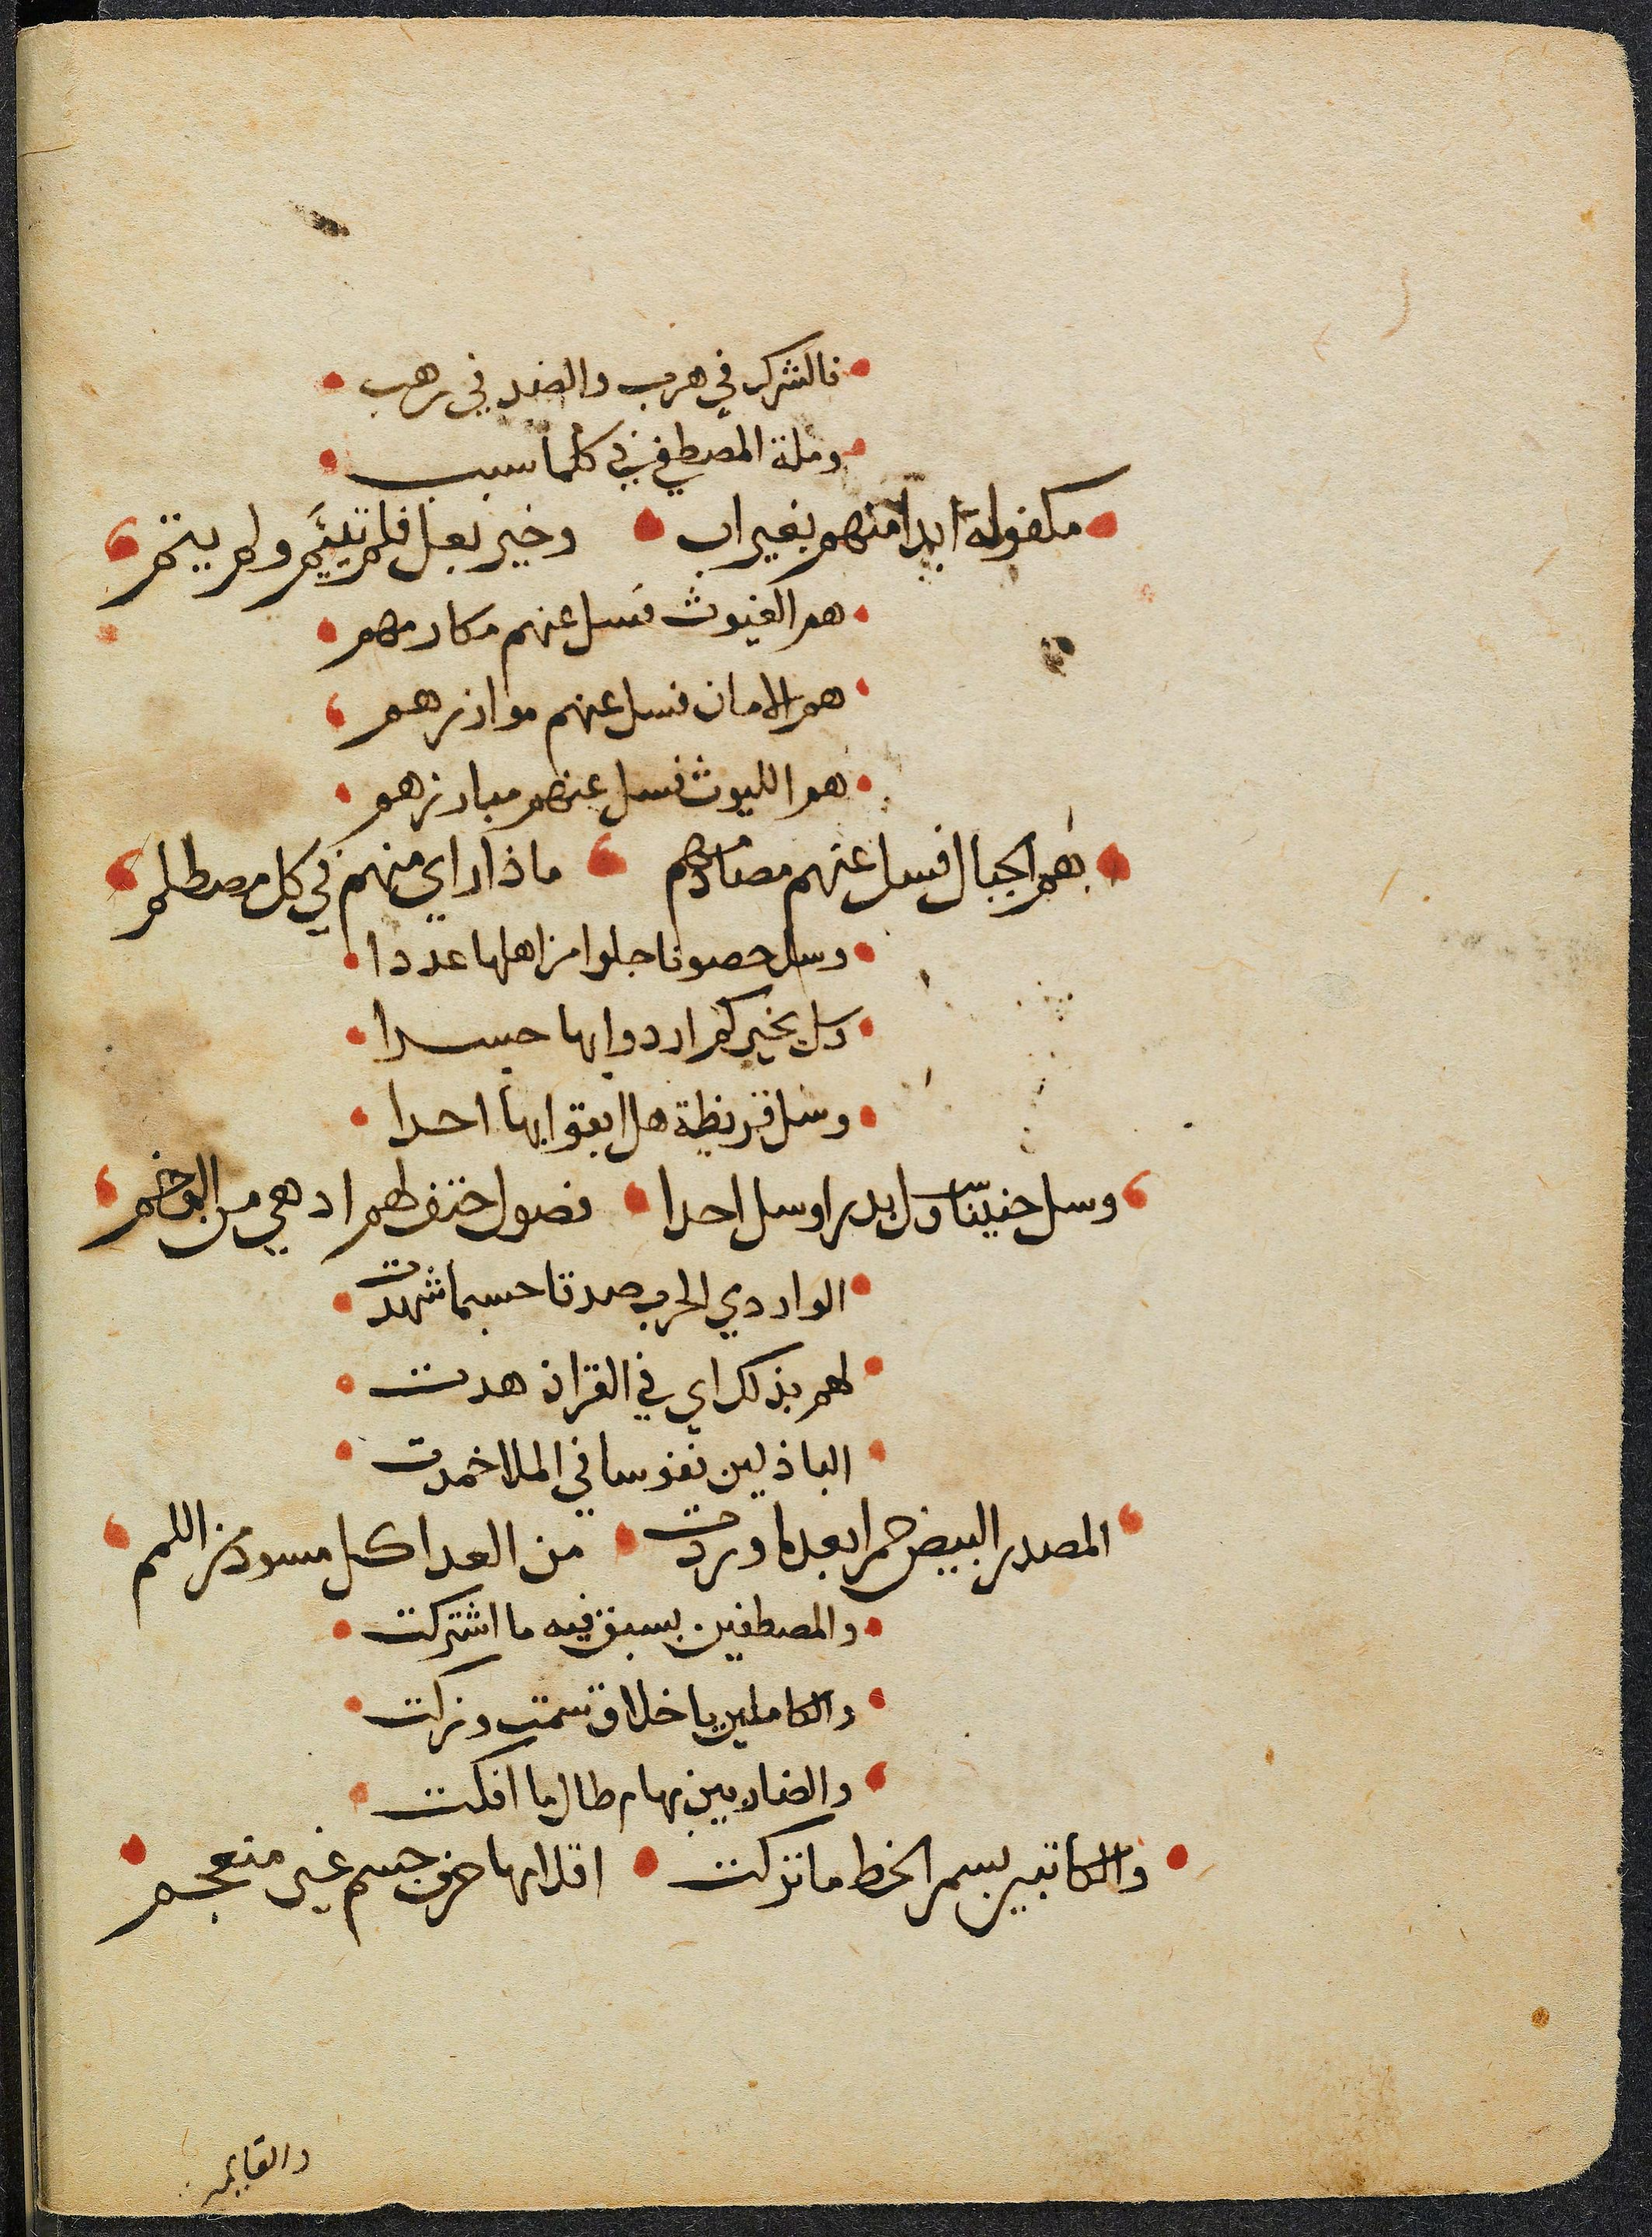 فالشرك في هرب والضد في رهب
وملة المصطفي في كلما سبب
مكفولة ابدا منهم بخير اب وخير بعل فلم تيتم ولم يتم
هم الغيوث فسل عنهم مكارمهم
هم الامان فسل عنهم موازرهم
هم الليوث فسل عنهم مبارزهم
هم الجبال فسل عنهم مصادمهم ماذا راي منهم في كل مصطلم
وسل حصونا جلوا من اهلها عددا
وسل بخيبر كم اردوا بها حسدا
وسل قريظة هل ابقوا بها احدا
وسل حنينا وسل بدرا وسل احدا فصول حتف لهم ادهي من الوخم
الواردي الحرب صدقا حسبما شهدت
لهم بذلك اي في القران هدت
الباذلين نفوسا في الملا حمدت
المصدر البيض حمرا بعدما وردت من العدا كل مسود من اللمم
والمصطفين بسبق فيه ما اشتركت
والكاملين باخلاق سمت وزكت
والضاربين بهام طال ما افكت
والكاتبين بسمر الخط ما تركت اقلامها حرف جسم غير منعجم
والقايم